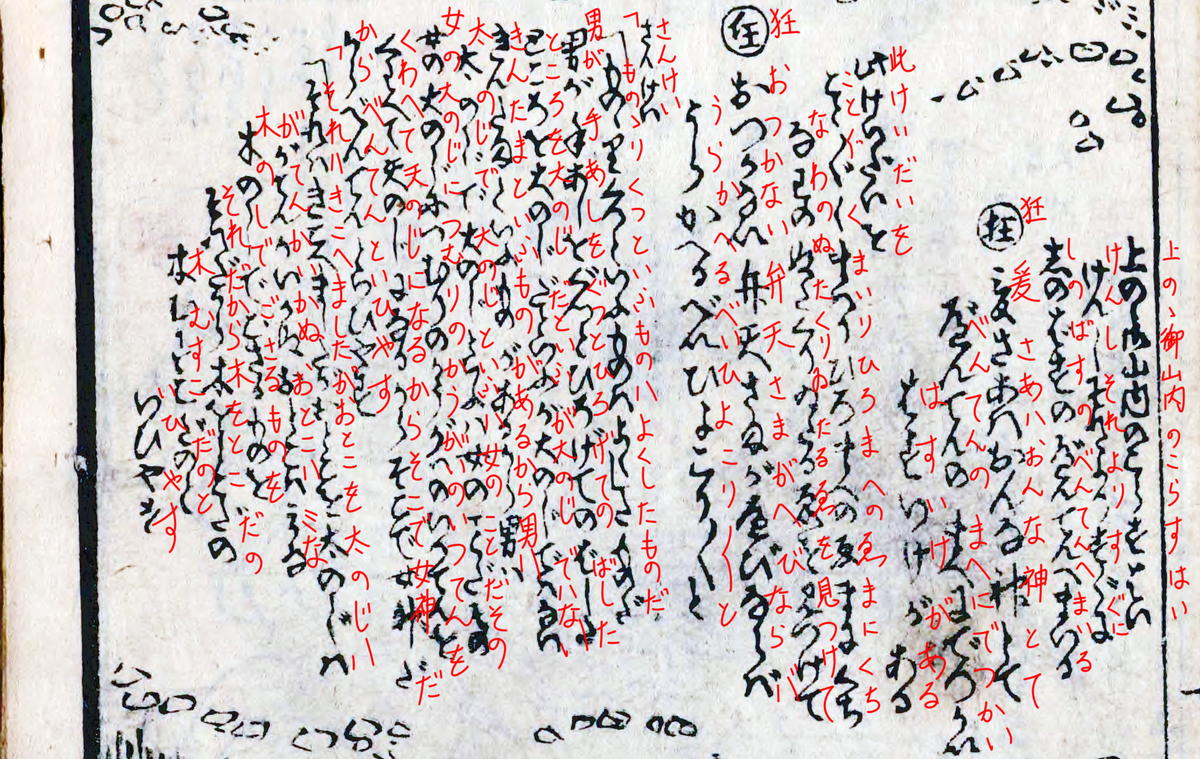 上のゝ御山内のこらすはい
けんしそれよりすぐに
しのばすのべんてんへまいる
狂
爰さあハおんな神とて
べんてんのまへにでつかい
はすいけがある
此けいだいを
こと〴〵くまいりひろまへのゑまにくち
なわのぬたくりゐたるゑを見つけて
狂
おつかない弁天さまがへびならバ
うらかへるべいひよこり〱と
さんけい
「ものゝりくつといふものハよくしたものだ
男が手あしをぐつとひろげてのばした
ところを大のじだといふが大のじでハない
きんたまといふものがあるから男ハ
太のじで大のじといふハ女のことだその
女の大のじにつむりのかうがいのいつてんを
くわへて天のじになるからそこで女神だ
からべんてんといひやす
「それハきこへましたがおとこを太のじハ
がてんがいかぬおとこハミな
木のしでござるものを
それだから木をとこだの
木むすこだのと
いひやす